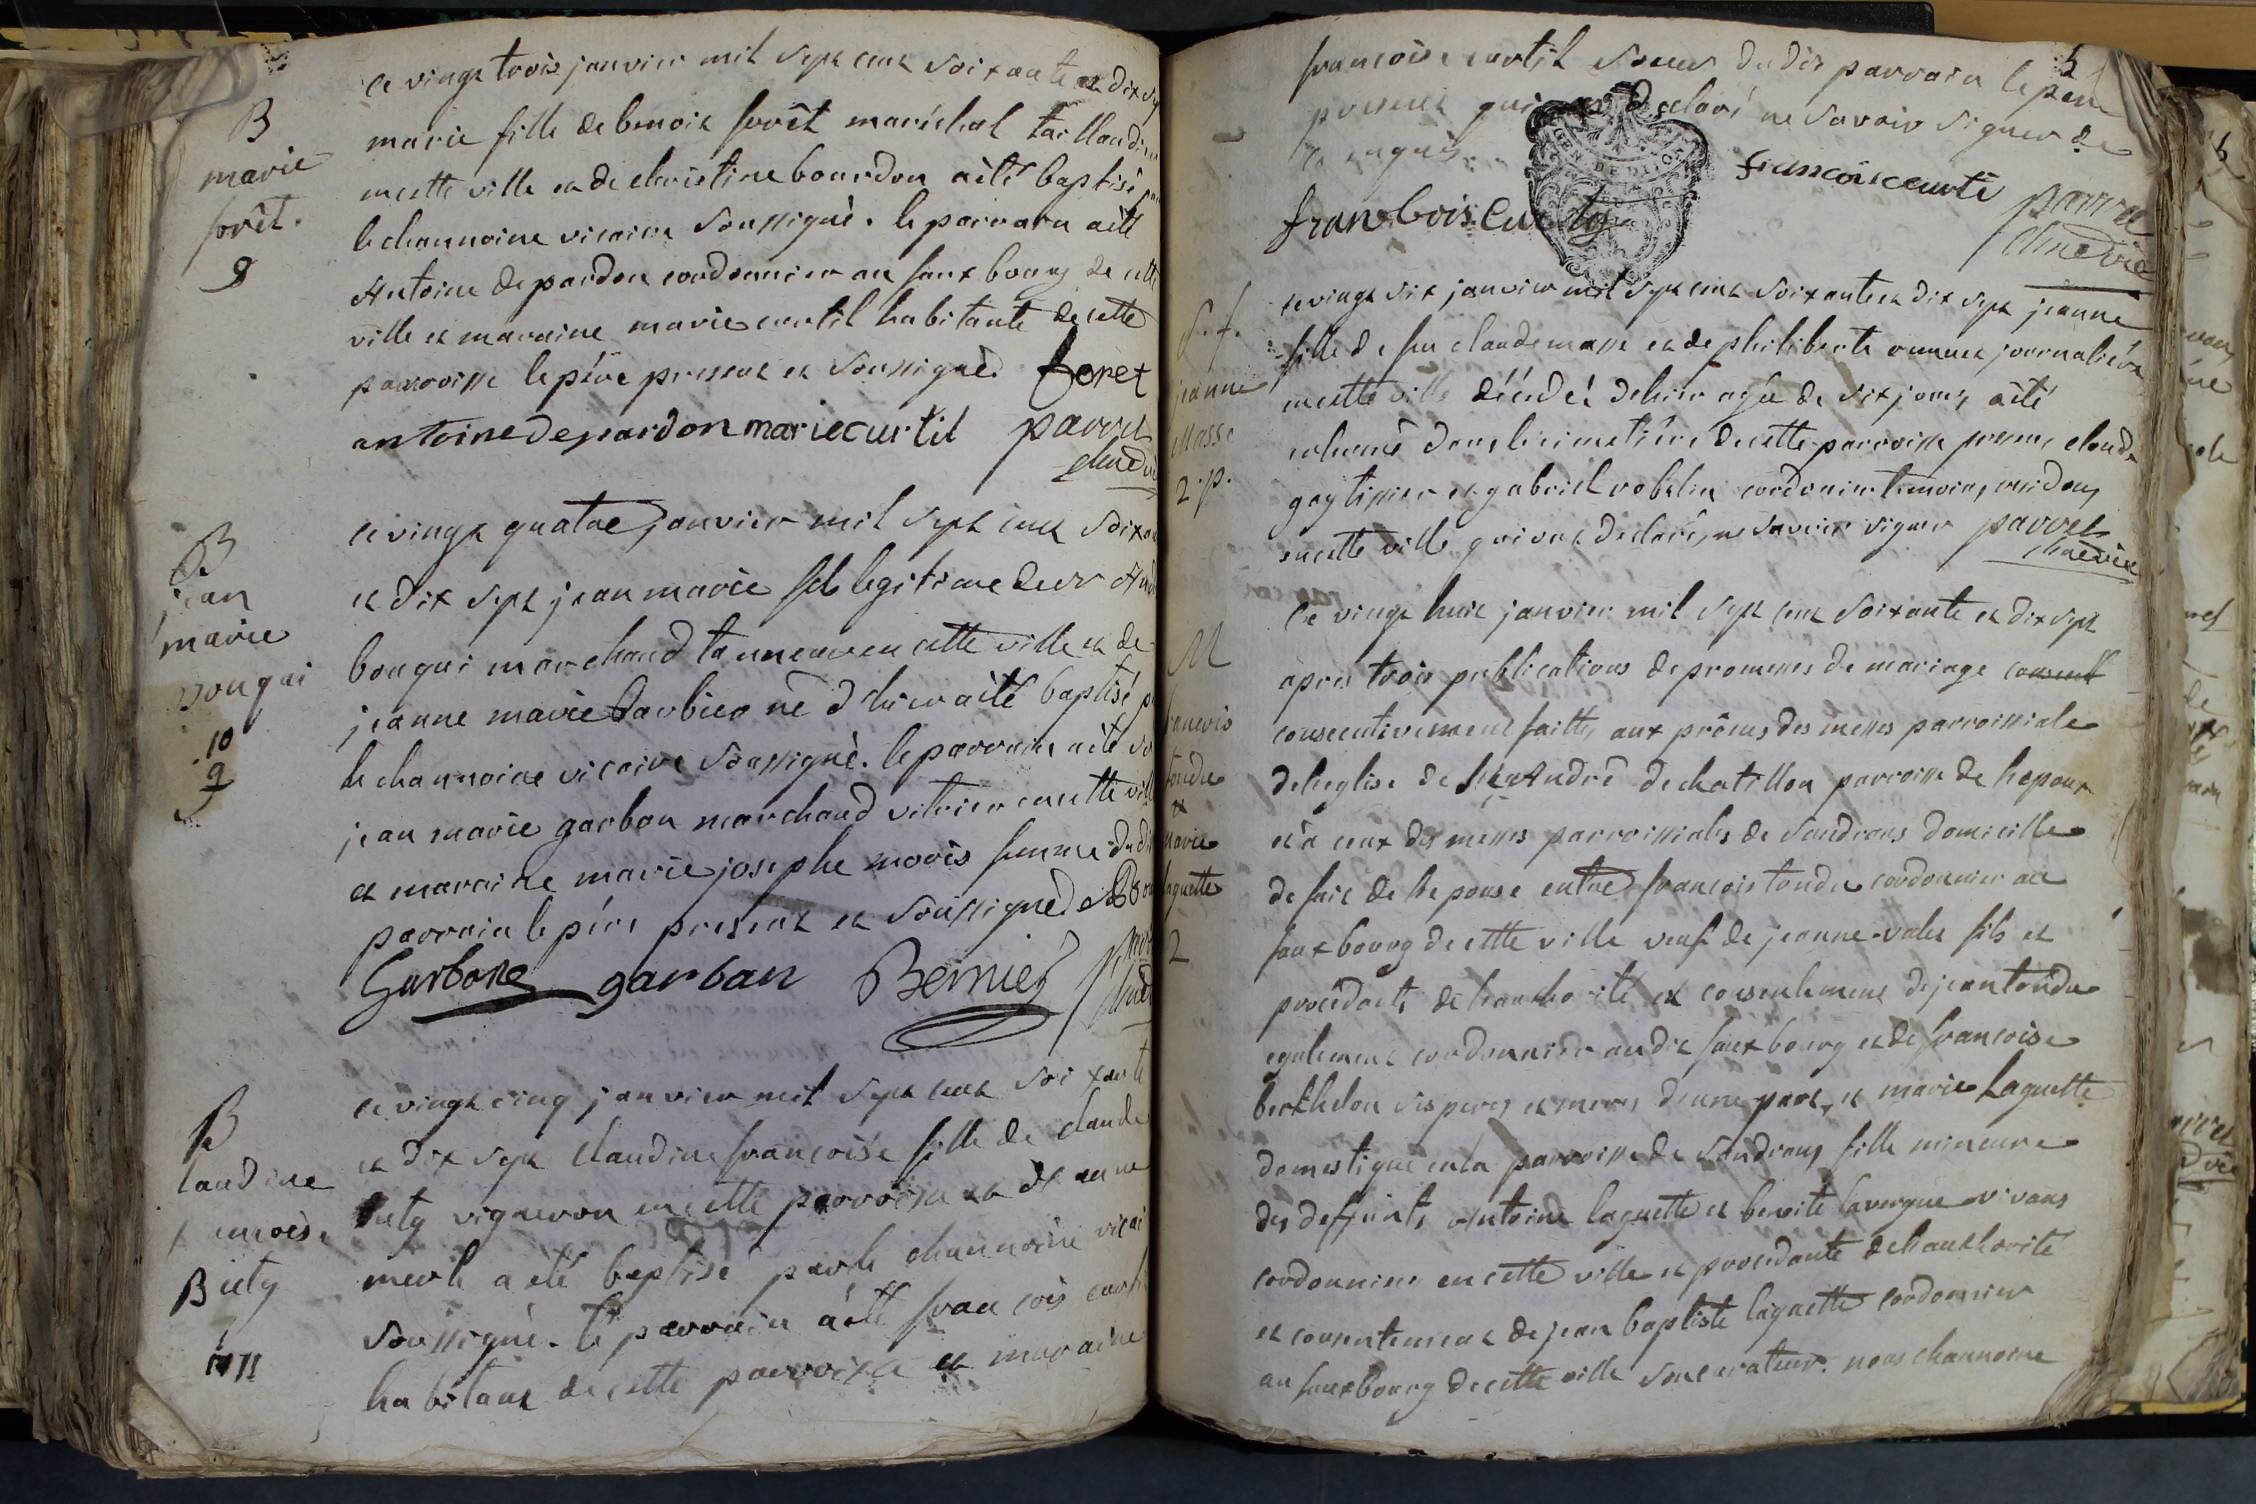 B
marie
forêt.
9
ce vingt trois janvier mil sept cent soixante et dix
marie fille de benoit forêt maréchal taillandier
en cette ville et de christine bourdon a été baptisé
le channoine vicaire soussigné. le parrain a été
Antoine depardon cordonnier au faux bourg de cette
ville et maraine marie curtil habitante de cette
parroisse le père present et soussigné foret
antoine depardon marie curtil parret
B
jean
marie
bouqui
10
9
ce vingt quatre janvier mil sept cent
et dix sept jean marie fils legitime de sr
bouqui marchand tanneur en cette ville et de
jeanne marie né d'hier a été baptisé
le channoine vicaire soussigné. le parrain a été
jean marie garbon marchand vitrier en cette ville
et maraine marie josephe femme du dit
parrain le père present et soussigné
Garbon garban Bernier
B
laudine
Buty
11
ce vingt cinq janvier mil sept cent soixante
et dix sept claudine françoise fille de claude
buty vigneron en cette parroisse et de anne
merle a été baptisé par le channoine
soussigné. le parrain a été françois
habitant de cette parroisse et maraine
françoise curtil soeur du dit parrain le pere
present qui declaré ne savoir signer de
ce enquis.
francoise curti
franbois Curty parret
jeanne
Masse
2.p.
ce vingt six janvier mil sept cent soixante et dix sept jeanne
fille de feu claude masse et de philiberte journalière
en cette ville décédé d'hier agée de six jours a été
inhumé dans le cimetière de cette parroisse present claude
gay tissier et gabriel robelin cordonnier temoins residens
en cette ville qui ont declaré ne savoir signer parret
M
francois
tondu
et
marie
laguette
2
Ce vingt huit janvier mil sept cent soixante et dix sept
apres trois publications de promesses de mariage
consecutivement faittes aux prônes des messes parroissiale
de l'eglise de st André de chatillon parroisse de l'epoux
et à ceux des messes parroissiales de sandrans domicille
de fait de l'epouse entre francois tondu cordonnier au
faux bourg de cette ville veuf de jeanne valet fils et
procédant de l'authorité et consentement de jean tondu
egalement cordonnier au dit faux bourg et de françoise
berthelon ses peres et meres d'une part, et marie Laguette
domestique en la parroisse de sandrans fille mineure
des deffunts antoine laguette et benoite lavergne vivans
cordonnier en cette ville et procedante de l'authorité
et consentement de jean baptiste laguette cordonnier
au fauxbourg de cette ville son curateur. nous channoine